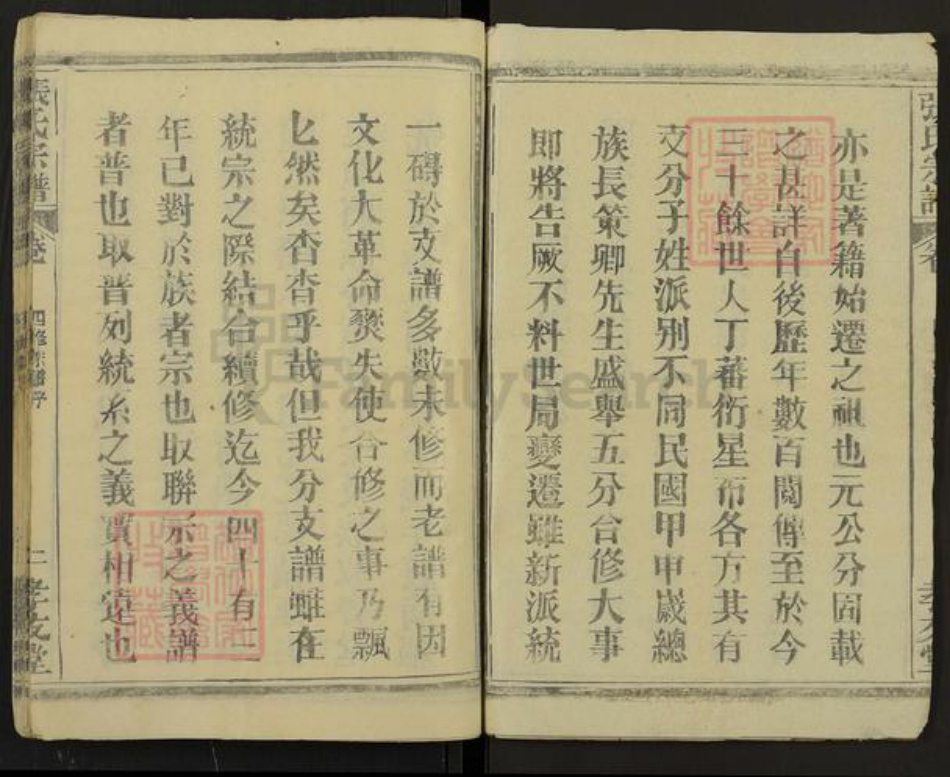 亦是著籍始遷之祖也元公分圄載
之甚詳自後歷年數百閱傳至於今
三十餘世人丁蕃衍星布各方其有
文分子姓派别不同民國甲申嵗總
族長策卿先生盛舉五分合修大事
即將告厥不料世局變遷雖新派統
一礙於支譜多數未修而老譜有因
文化大革命燹失使合修之事乃飄
匕然矣杳杳乎哉但我分支譜雖在
統宗之際結合續修迄今四十有二
年已對於族者宗也取聯系之義譜
者普也取普列統系之義實相遠也
張氏宗譜
四修宗譜序
二
孝友堂
張氏宗譜
孝友堂
FamilySearch